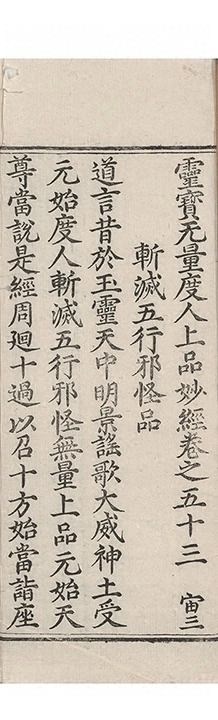 靈寳无量度人上品妙經卷之五十三 宙三
斬滅五行邪怪品
道言昔於玉靈天中明景謡歌大威神土受
元始度人斬滅五行邪怪無量上品元始天
尊當說是經周廻十過以召十方始當詣座